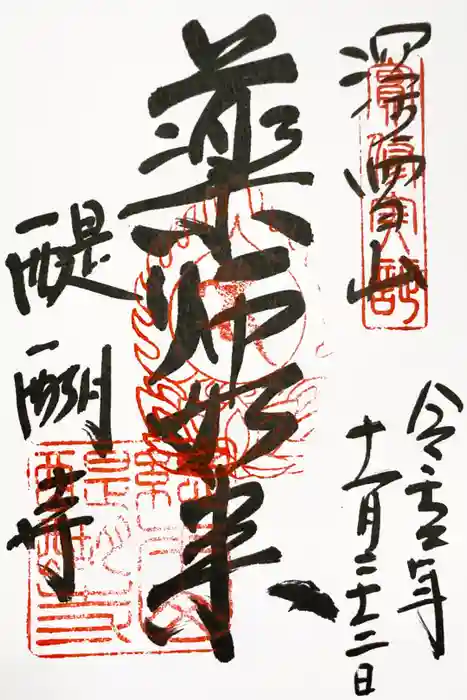 深雪山
薬師如来
醍醐寺
令和五年
十一月二十二日